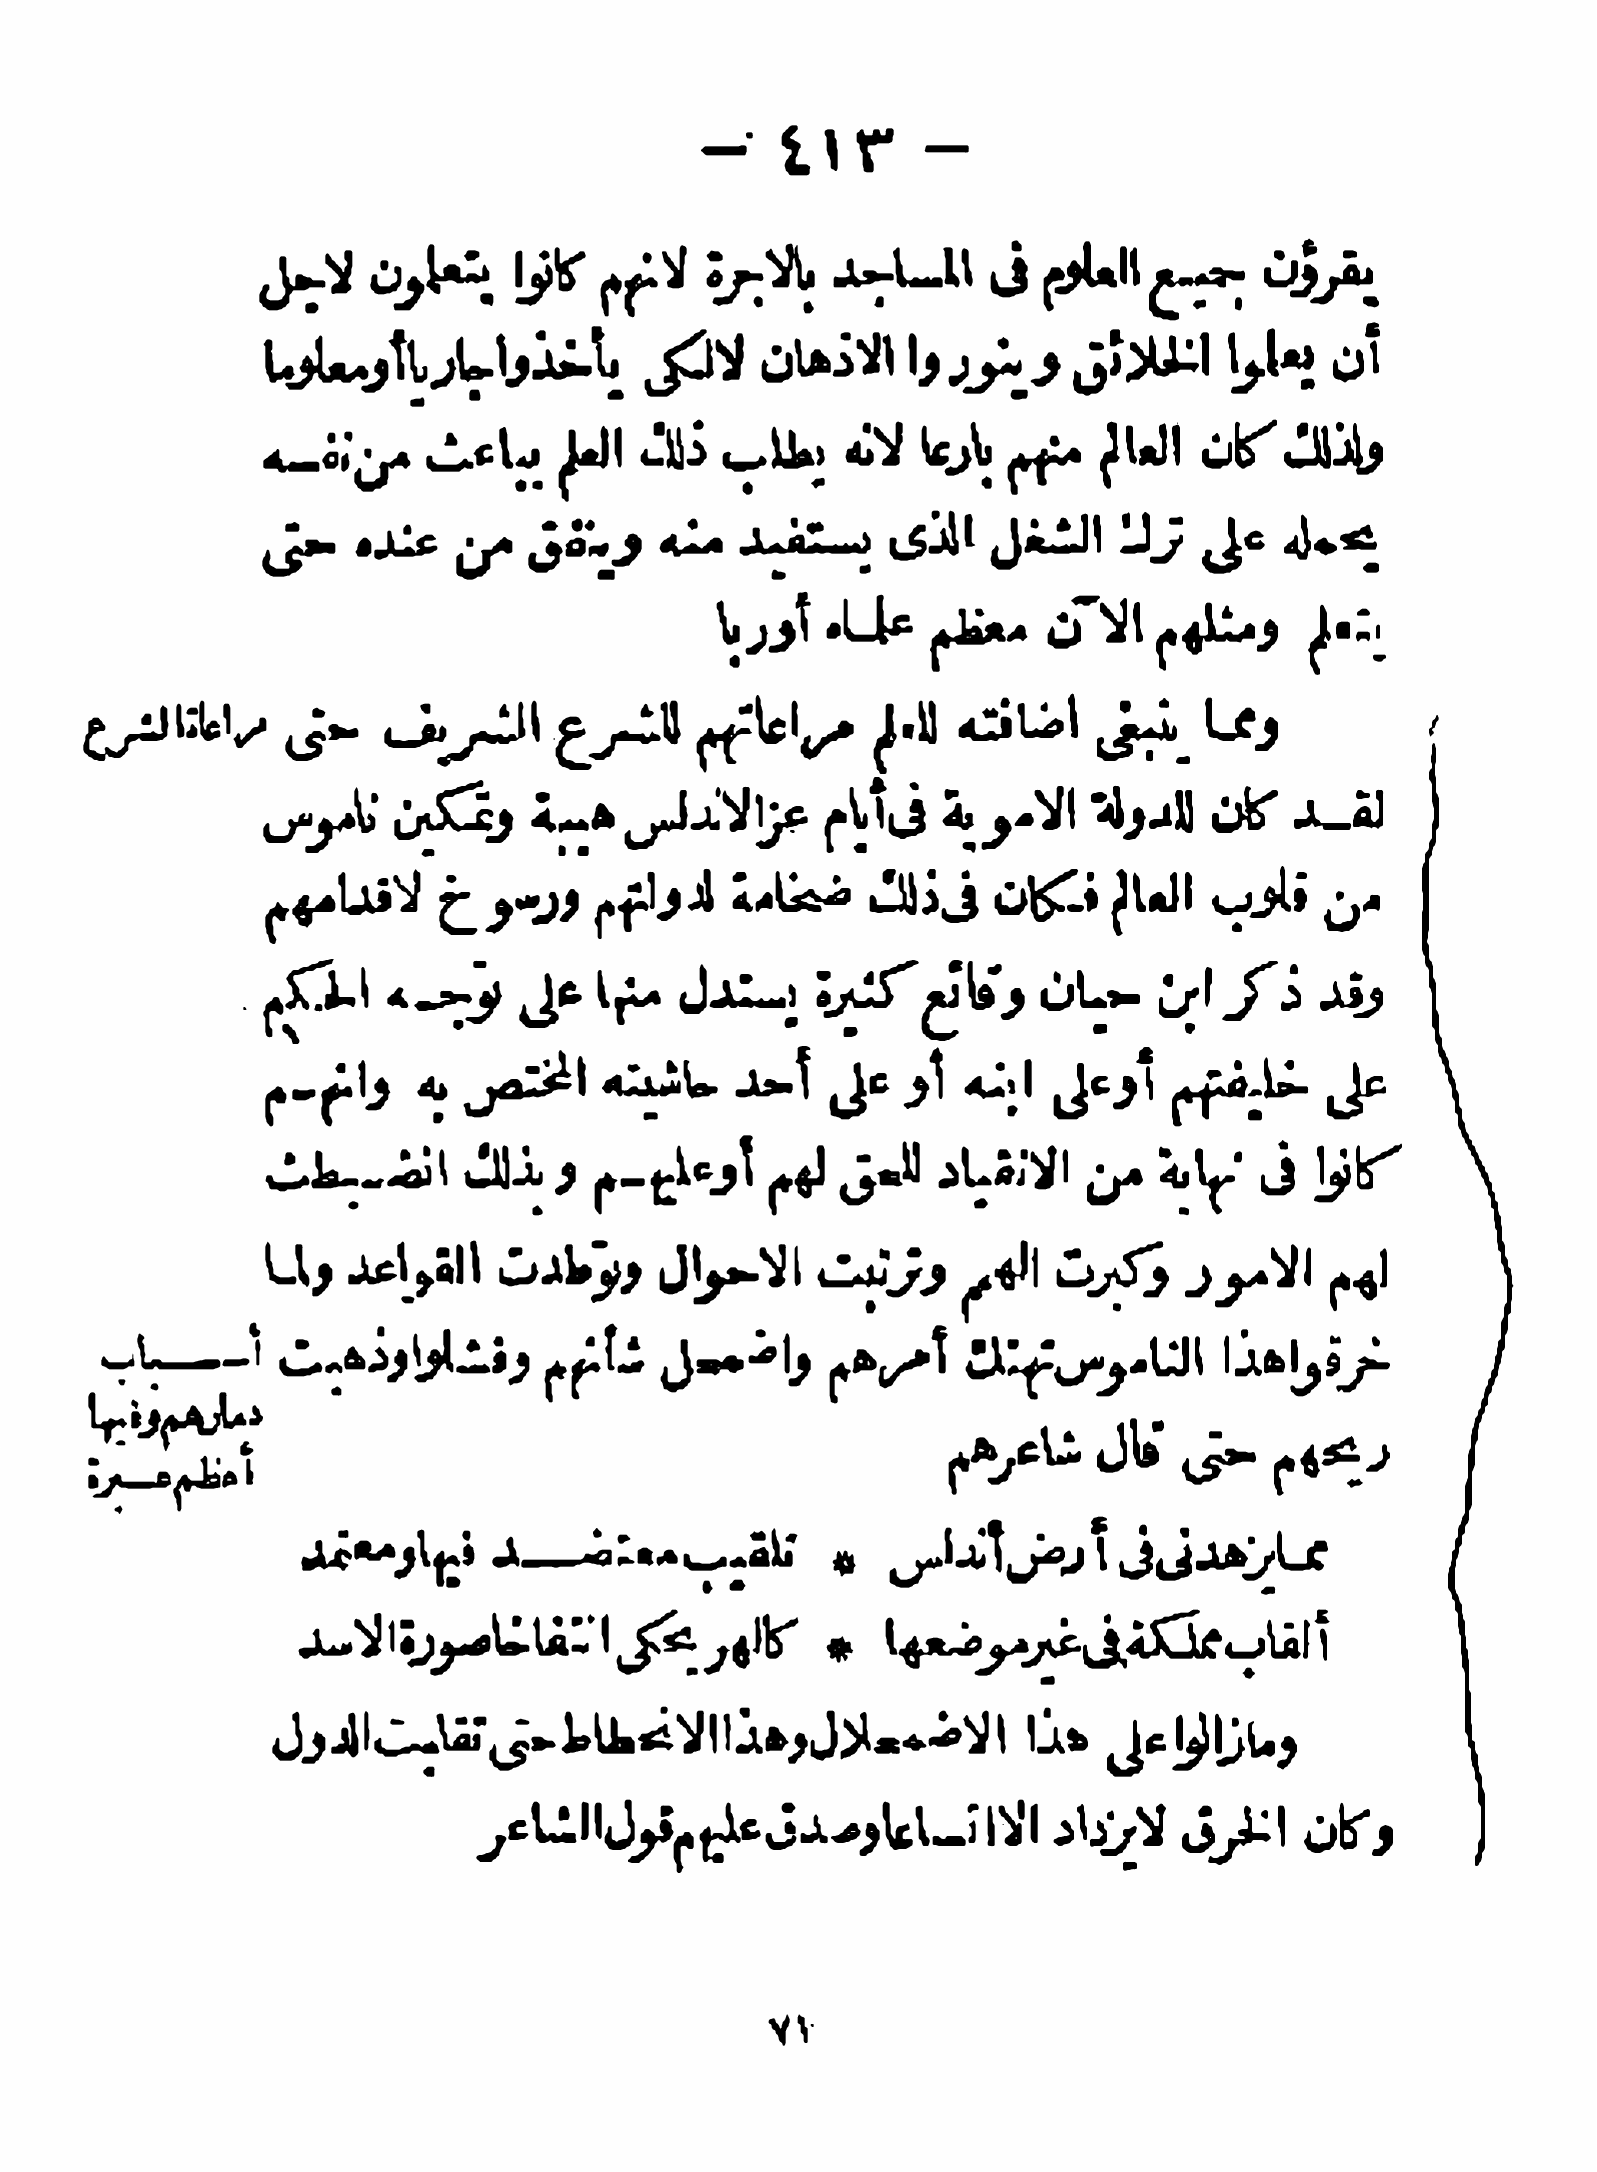 — ٤١٣ —
يقرؤن جميع العلوم فى المساجد بالاجرة لانهم كانوا يتعلمون لاجل
أن يعلموا الخلائق وينوروا الاذهان لالكى يأخذوا جاريا أو معلوما
ولذلك كان العالم منهم بارعا لانه يطلب ذلك العلم بباعث من نفسه
يحمله على ترك الشغل الذى يستفيد منه وينفق من عنده حتى
يتعلم ومثلهم الآن معظم علماء أوربا
ومما ينبغى اضافته للعلم مراعاتهم للشرع الشريف حتى
مراعاة الشرع
لقد كان للدولة الاموية فى أيام عز الاندلس هيبة وتمكين ناموس
من قلوب العالم فكان فى ذلك ضخامة لدولتهم ورسوخ لاقدامهم
وقد ذكر ابن حيان وقائع كثيرة يستدل منها على توجه الحكم
على خليفتهم أو على ابنه أو على أحد حاشيته المختص به وانهم
كانوا فى نهاية من الانقياد للحق لهم أو عليهم وبذلك انضبطت
لهم الامور وكبرت الهمم وترتبت الاحوال وتوطدت القواعد ولما
خرقوا هذا الناموس تهتك أمرهم واضمحل شأنهم وفشلوا وذهبت
أسباب
دمارهم وفيها
أعظم عبرة
ريحهم حتى قال شاعرهم
مما يزهدنى فى أرض أندلس * تلقيب معتضد فيها ومعتمد
ألقاب مملكة فى غير موضعها * كالهر يحكى انتفاخا صورة الاسد
ومازالوا على هذا الاضمحلال وهذا الانحطاط حتى تقلبت الدول
وكان الخرق لا يزداد الا اتساعا وصدق عليهم قول الشاعر
٧١